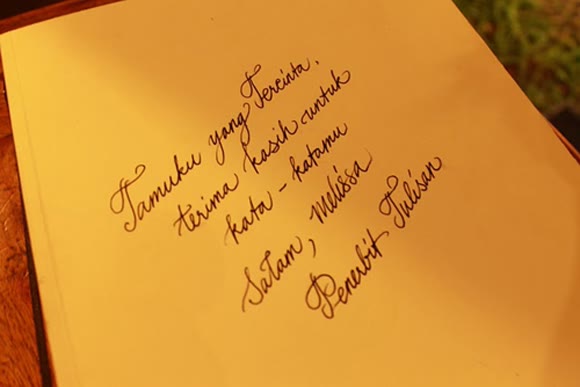 Tamuku yang Tercinta,
terima kasih untuk
kata - katamu
Salam, Melissa
Penerbit Tulisan